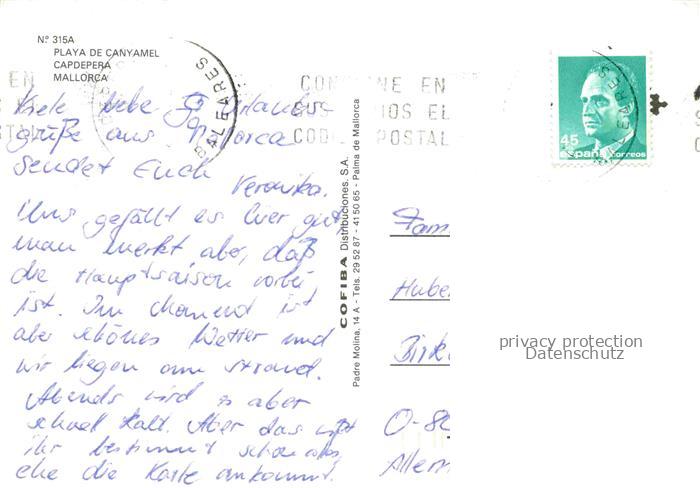 Nº 315A
PLAYA DE CANYAMEL
CAPDEPERA
MALLORCA
BALEARES
EN
CON NE EN
OS EL
CODI POSTAL
45
España correos
BALEARES
Viele liebe Urlaubs-
grüße aus Mallorca
sendet Euch
Veronika.
Uns gefällt es hier gut,
man merkt aber, daß
die Hauptsaison vorbei
ist. Im Moment ist
aber schönes Wetter und
wir liegen am Strand.
Abends wird es aber
schnell kalt. Aber das
ihr bestimmt schon alles,
ehe die Karte ankommt.
COFIBA Distribuciones, S.A.
Padre Molina, 14 A - Tels. 29 52 87 - 41 50 65 - Palma de Mallorca
Fam
Hube
Birk
O-82
Allem
privacy protection
Datenschutz